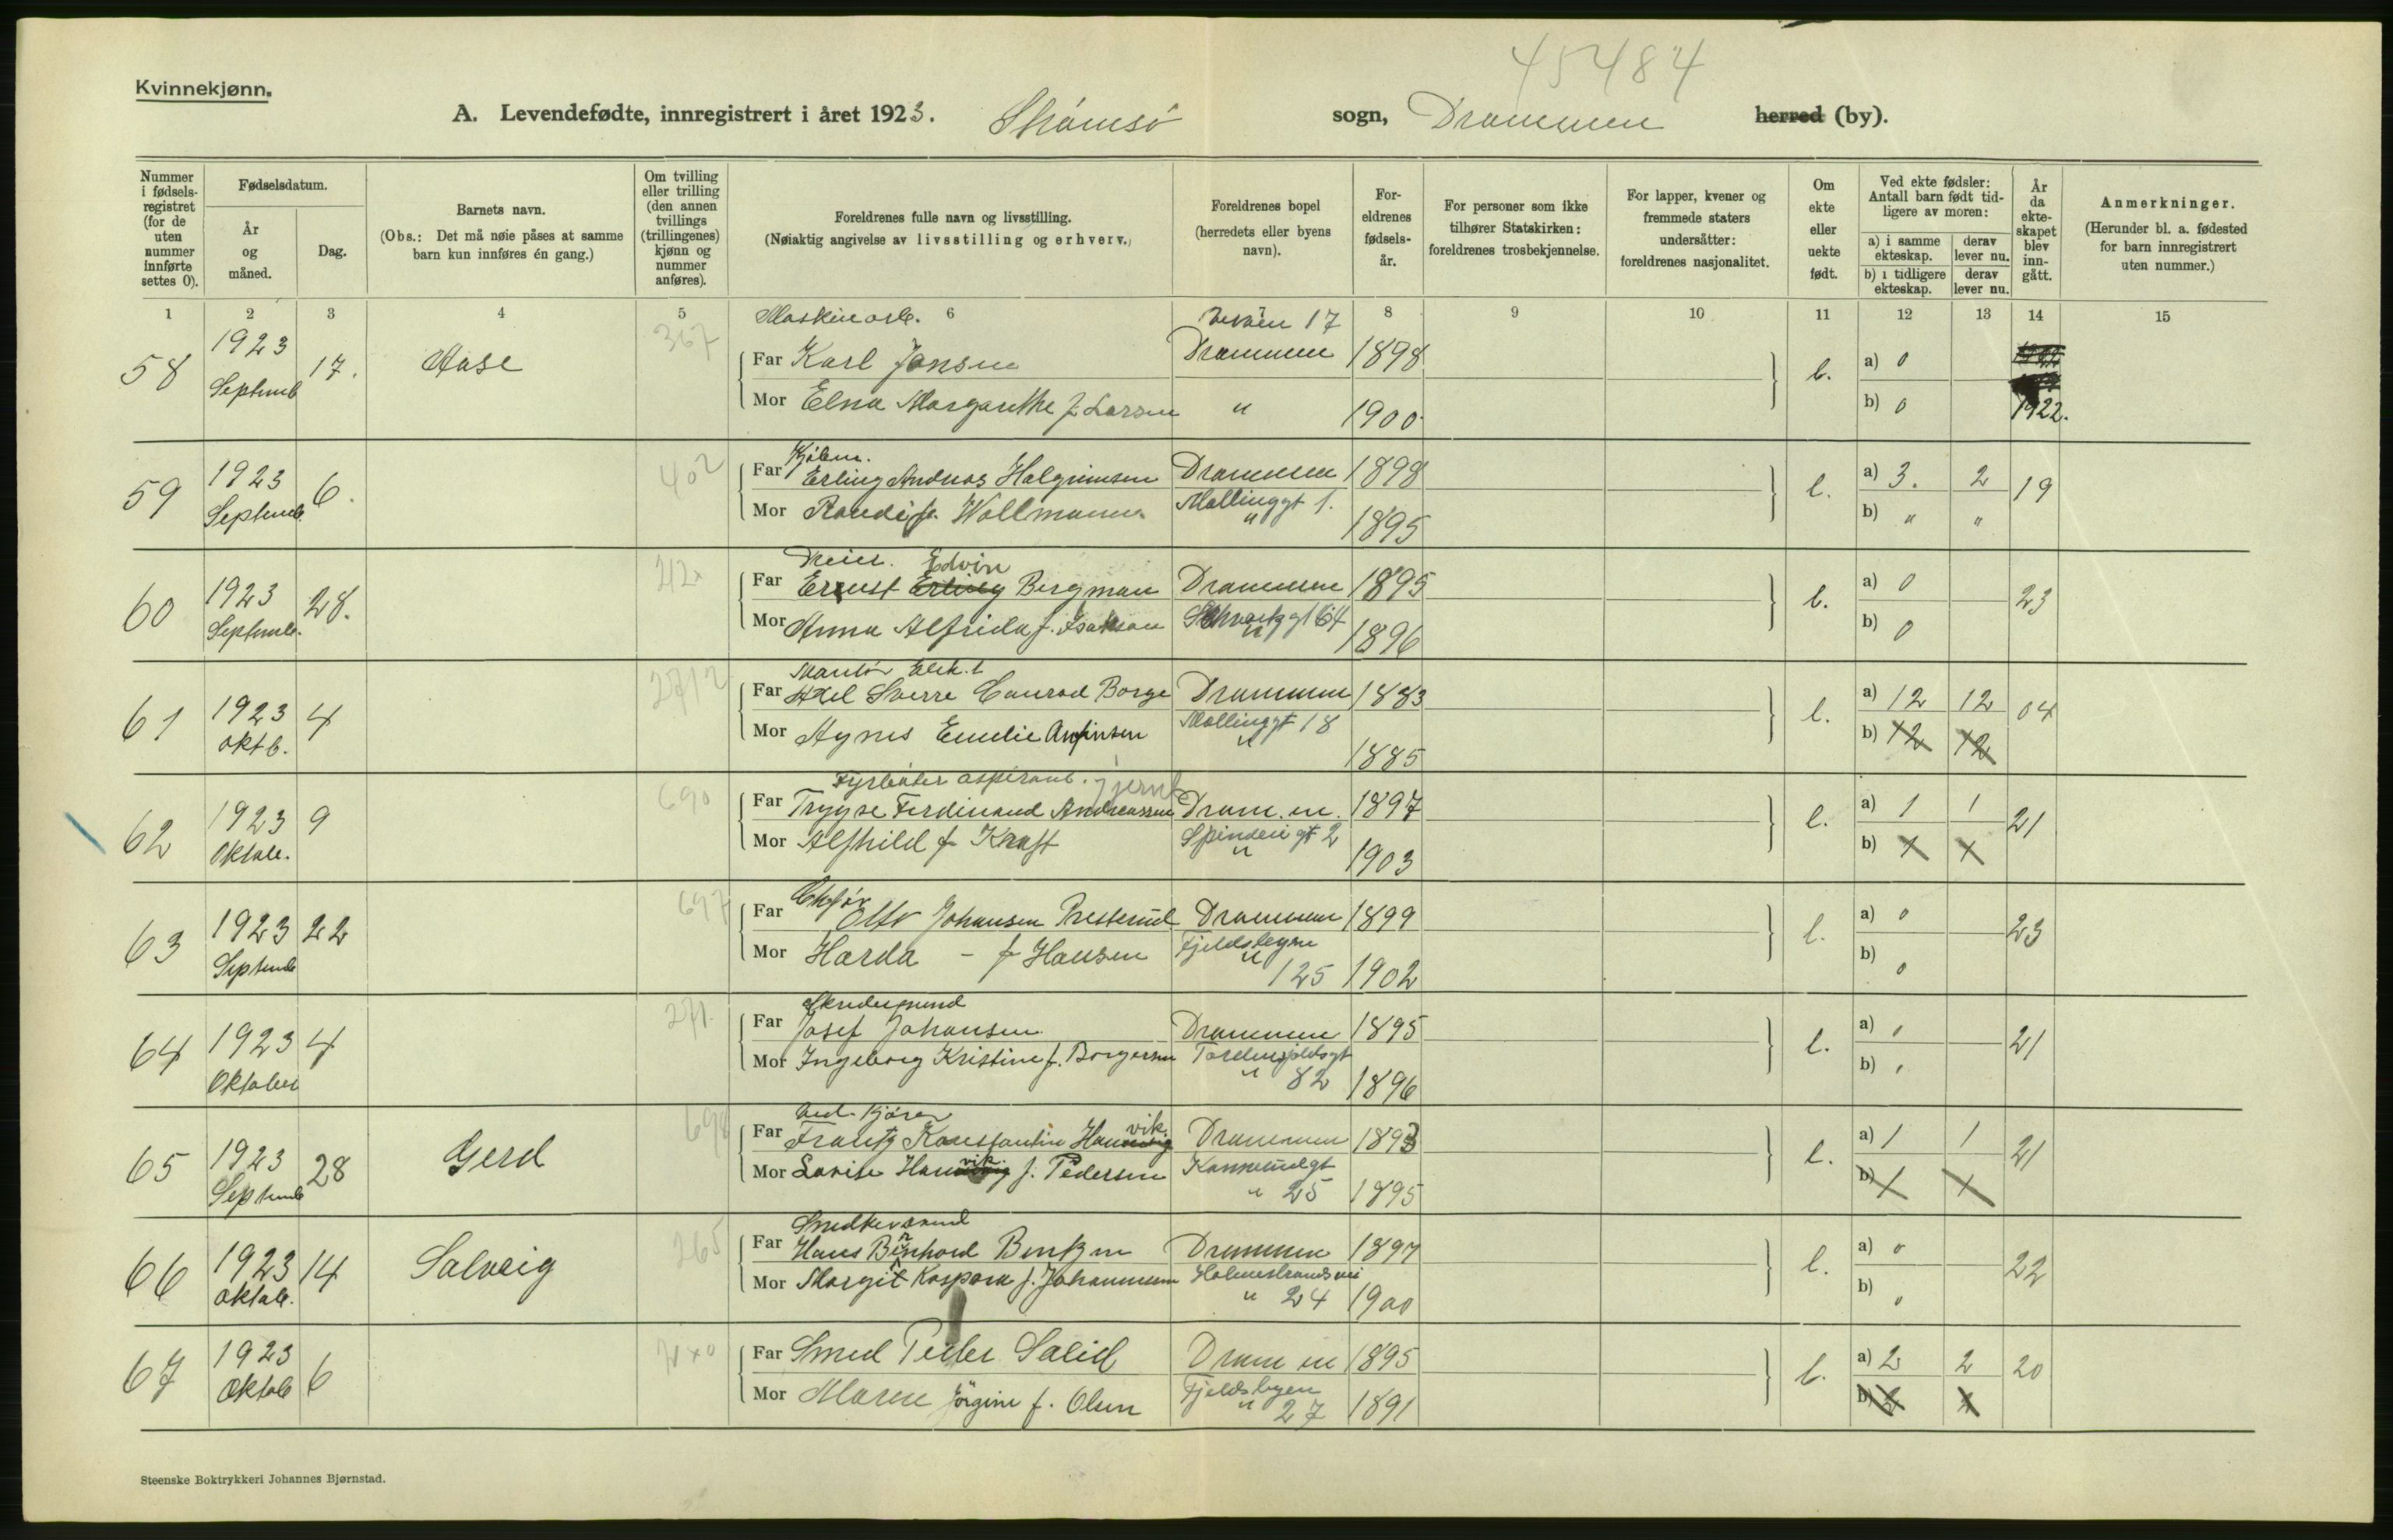 45484
Kvinnekjønn.
A. Levendefødte, innregistrert i året 1923. Strømsø sogn, Drammen herred (by).
Nummer i fødselsregistret (for de uten nummer innførte settes 0).
Fødselsdatum.
År og måned.
Dag.
Barnets navn.
(Obs.: Det må nøie påses at samme barn kun innføres én gang.)
Om tvilling eller trilling (den annen tvillings (trillingenes) kjønn og nummer anføres).
Foreldrenes fulle navn og livsstilling.
(Nøiaktig angivelse av livsstilling og erhverv.)
Foreldrenes bopel (herredets eller byens navn).
Foreldrenes fødselsår.
For personer som ikke tilhører Statskirken: foreldrenes trosbekjennelse.
For lapper, kvener og fremmede staters undersåtter: foreldrenes nasjonalitet.
Om ekte eller uekte født.
Ved ekte fødsler: Antall barn født tidligere av moren:
a) i samme ekteskap.
derav lever nu.
b) i tidligere ekteskap.
derav lever nu.
År da ekteskapet blev inngått.
Anmerkninger.
(Herunder bl. a. fødested for barn innregistrert uten nummer.)
1 2 3 4 5 6 8 9 10 11 12 13 14 15
58 1923 Septemb 17. Aase 367
Maskinarb.
Far Karl Jensen Drammen 1898
Mor Elna Margarethe f. Larsen " 1900
a) 0 b) 0 1922.
59 1923 Septemb. 6. 402
Far Erling Andreas Halgrimsen Drammen 1898
Mor Randi f. Wollmann Mollinggt 1. " 1895
a) 3. 2 b) " " 19
60 1923 Septemb. 28. 212
Dreier. Edvin
Far Ernst Erling Bergman Drammen 1895
Mor Anna Alfrida f. Isakson Schwartzgt 64 " 1896
a) 0 b) 0 23
61 1923 oktb. 4 2712
Montør Elek.
Far Axel Sverre Conrad Borge Drammen 1883
Mor Agnes Emelie Arnfinsen Mollinggt 18 " 1885
a) 12 12 b) 12 12 04
62 1923 Oktob. 9 690
Fyrbøter aspirant.
Far Trygve Ferdinand Andreassen Dram.en. 1897
Mor Alfhild f Kraft Spinderigt 2 " 1903
a) 1 1 b) 21
63 1923 Septemb 22 697
Far Olav Johansen Presterud Drammen 1899
Mor Harda - f Hansen Fjeldsbyen " 125 1902
a) 0 b) 0 23
64 1923 Oktober 4 271
Skredersvend
Far Josef Johansen Drammen 1895
Mor Ingeborg Kristine f. Borgersen Tordenskjoldsgt " 82 1896
21
65 1923 Septemb 28 Gerd 698
Far Frantz Konstantin Hannevik. Drammen 1893
Mor Lovise Hannevik f. Pedersen " 25 1895
a) 1 1 b) 21
66 1923 oktob. 14 Solveig 265
Far Hans Bernhard Bentzen Drammen 1897
Mor Margit Kaspara f. Johannessen Holmestrandsvei " 24 1900
a) 0 b) 0 22
67 1923 Oktob 6
Far Smed Peder Solid Drammen 1895
Mor Maren Jørgine f. Olsen Fjeldsbyen " 27 1891
a) 2 2 b) 20
Steenske Boktrykkeri Johannes Bjørnstad.